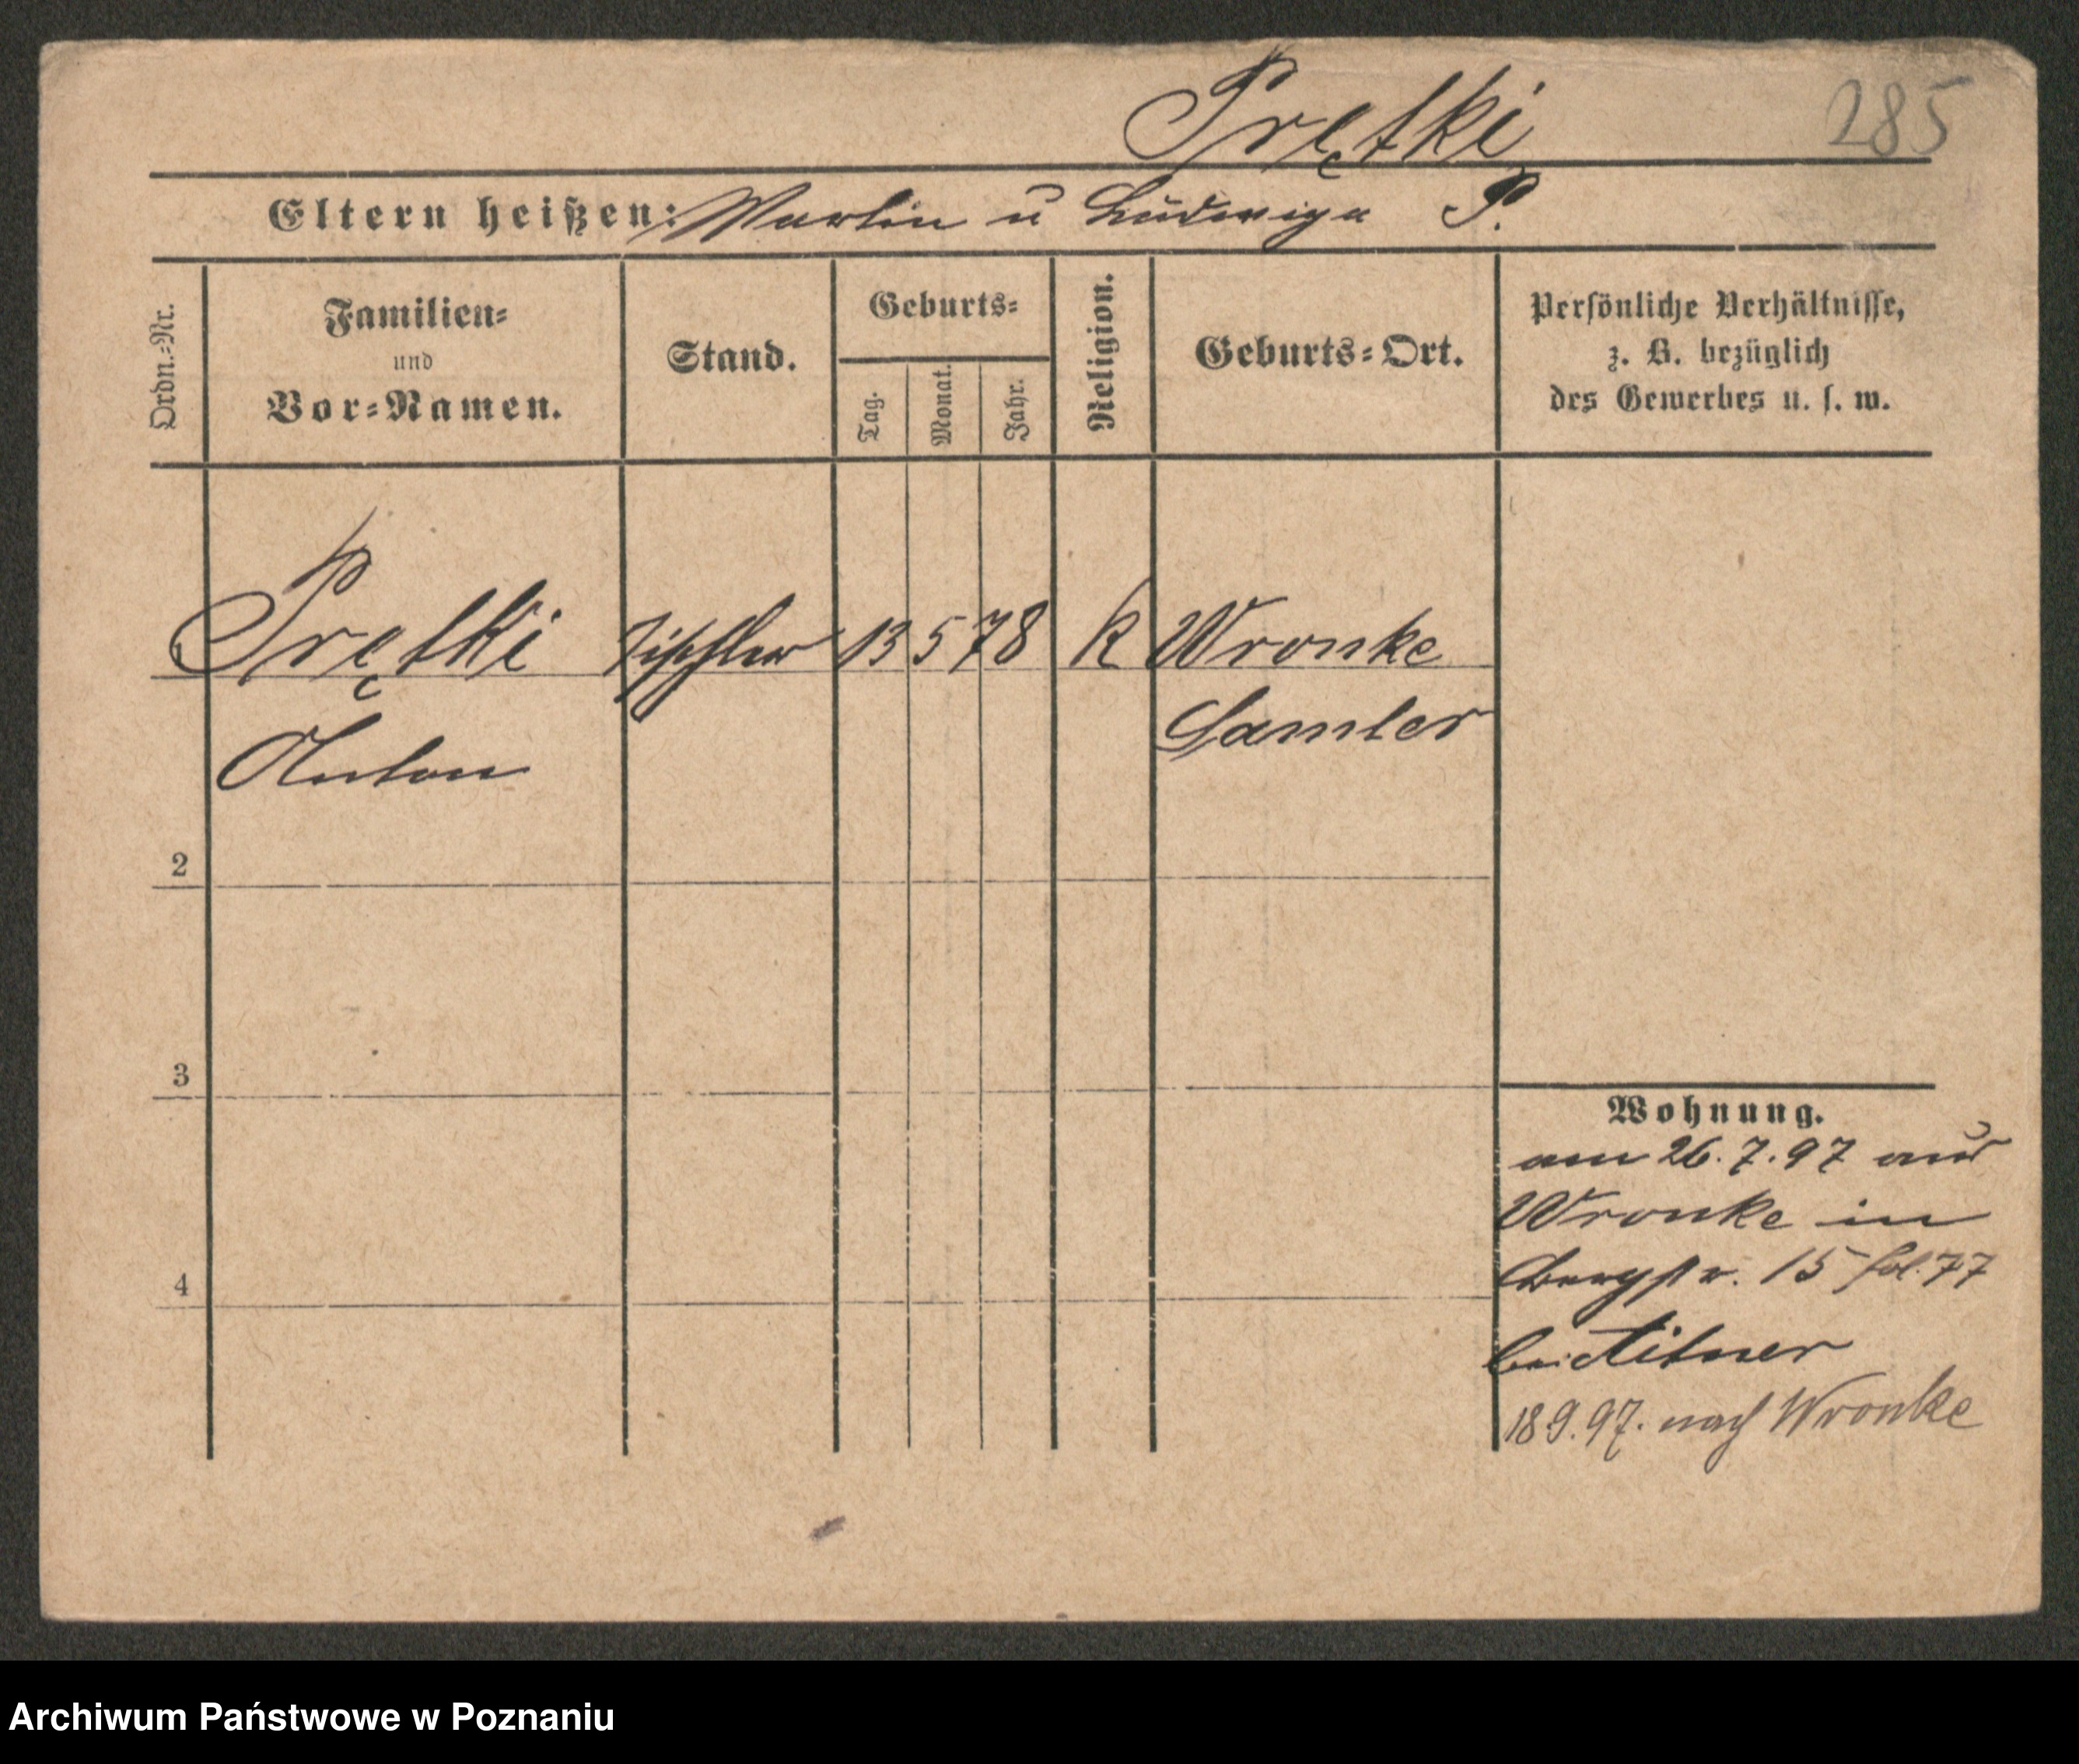 Prętki 285
Eltern heißen: Martin u Ludwiga P.
Ordn.=Nr.
Familien=
und
Vor=Namen.
Stand.
Geburts=
Tag.
Monat.
Jahr.
Religion.
Geburts=Ort.
Persönliche Verhältnisse,
z. B. bezüglich
des Gewerbes u. s. w.
Prętki Tischler 13 5 78 K Wronke
Anton
Samter
2
3
4
Wohnung.
am 26.7.97 aus
Wronke in
15 fol. 77
bei
18 9.97. nach Wronke
Archiwum Państwowe w Poznaniu